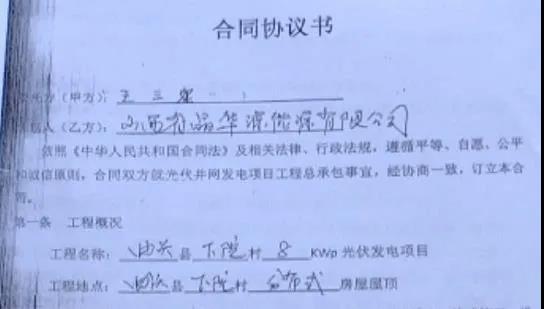 合同协议书
方（甲方）：王三
人（乙方）：山西省晶华源能源有限公司
依照《中华人民共和国合同法》及相关法律、行政法规，遵循平等、自愿、公平
和诚信原则，合同双方就光伏并网发电项目工程总承包事宜，经协商一致，订立本合
同。
第一条 工程概况
工程名称：县下院村 8 KWp 光伏发电项目
工程地点：县下院村 分布式 房屋屋顶